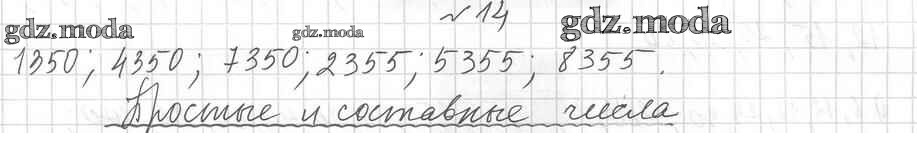 № 14
gdz.moda gdz.moda gdz.moda
1350; 4350; 7350; 2355; 5355; 8355.
Простые и составные числа